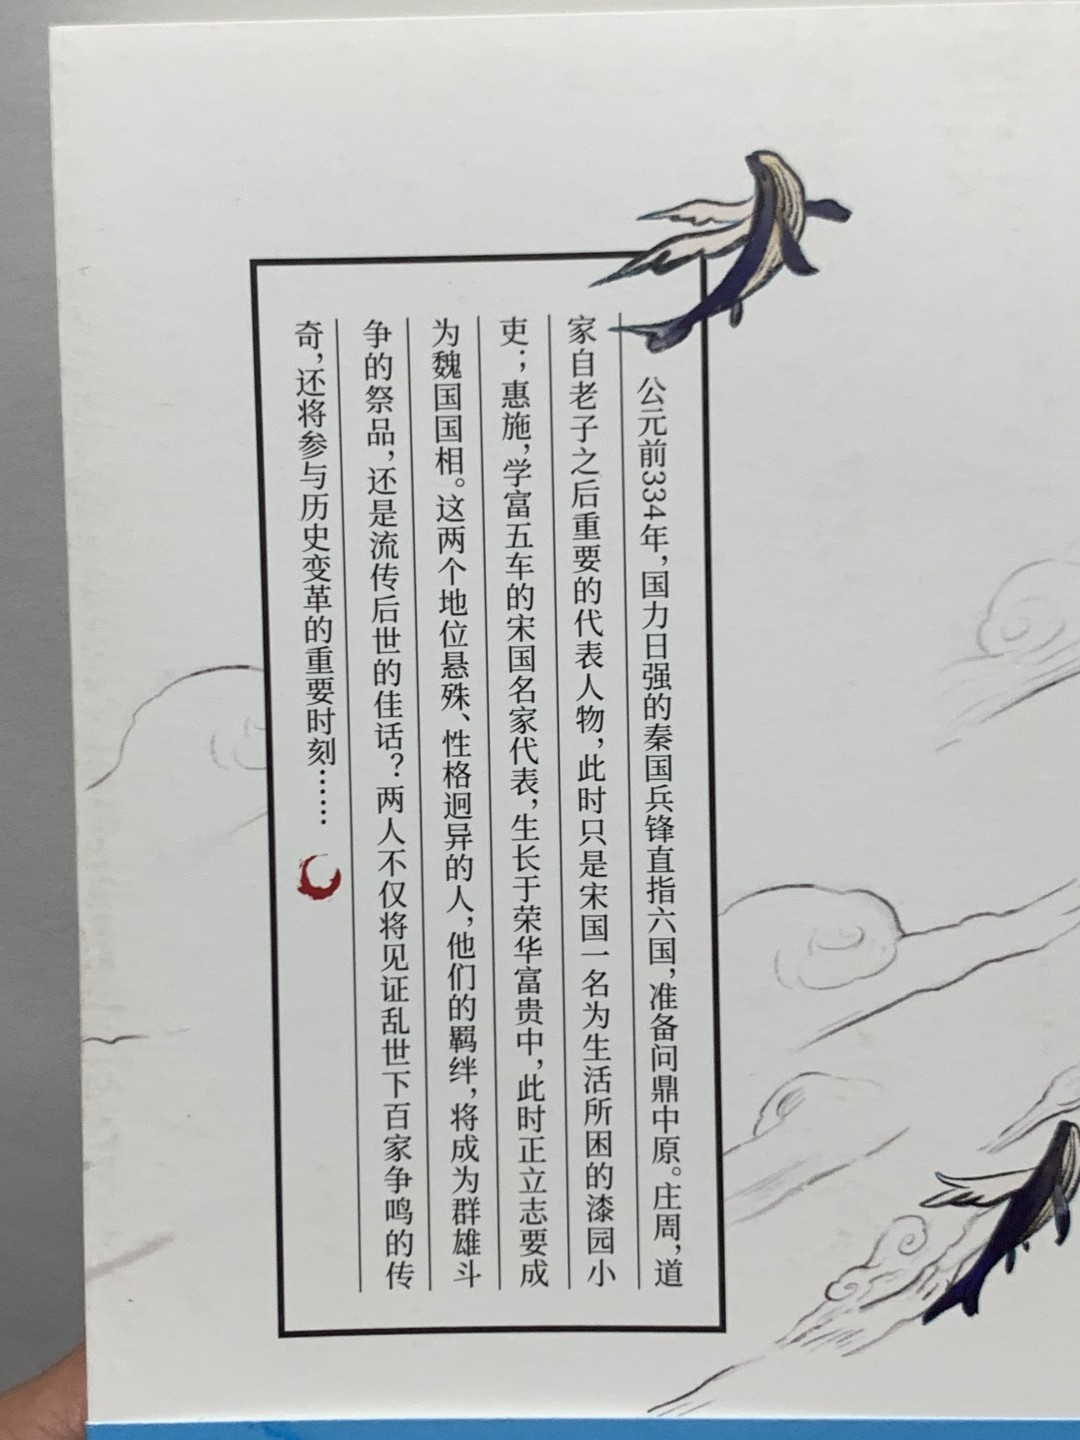 公元前334年，国力日强的秦国兵锋直指六国，准备问鼎中原。庄周，道
家自老子之后重要的代表人物，此时只是宋国一名为生活所困的漆园小
吏；惠施，学富五车的宋国名家代表，生长于荣华富贵中，此时正立志要成
为魏国国相。这两个地位悬殊、性格迥异的人，他们的羁绊，将成为群雄斗
争的祭品，还是流传后世的佳话？两人不仅将见证乱世下百家争鸣的传
奇，还将参与历史变革的重要时刻……